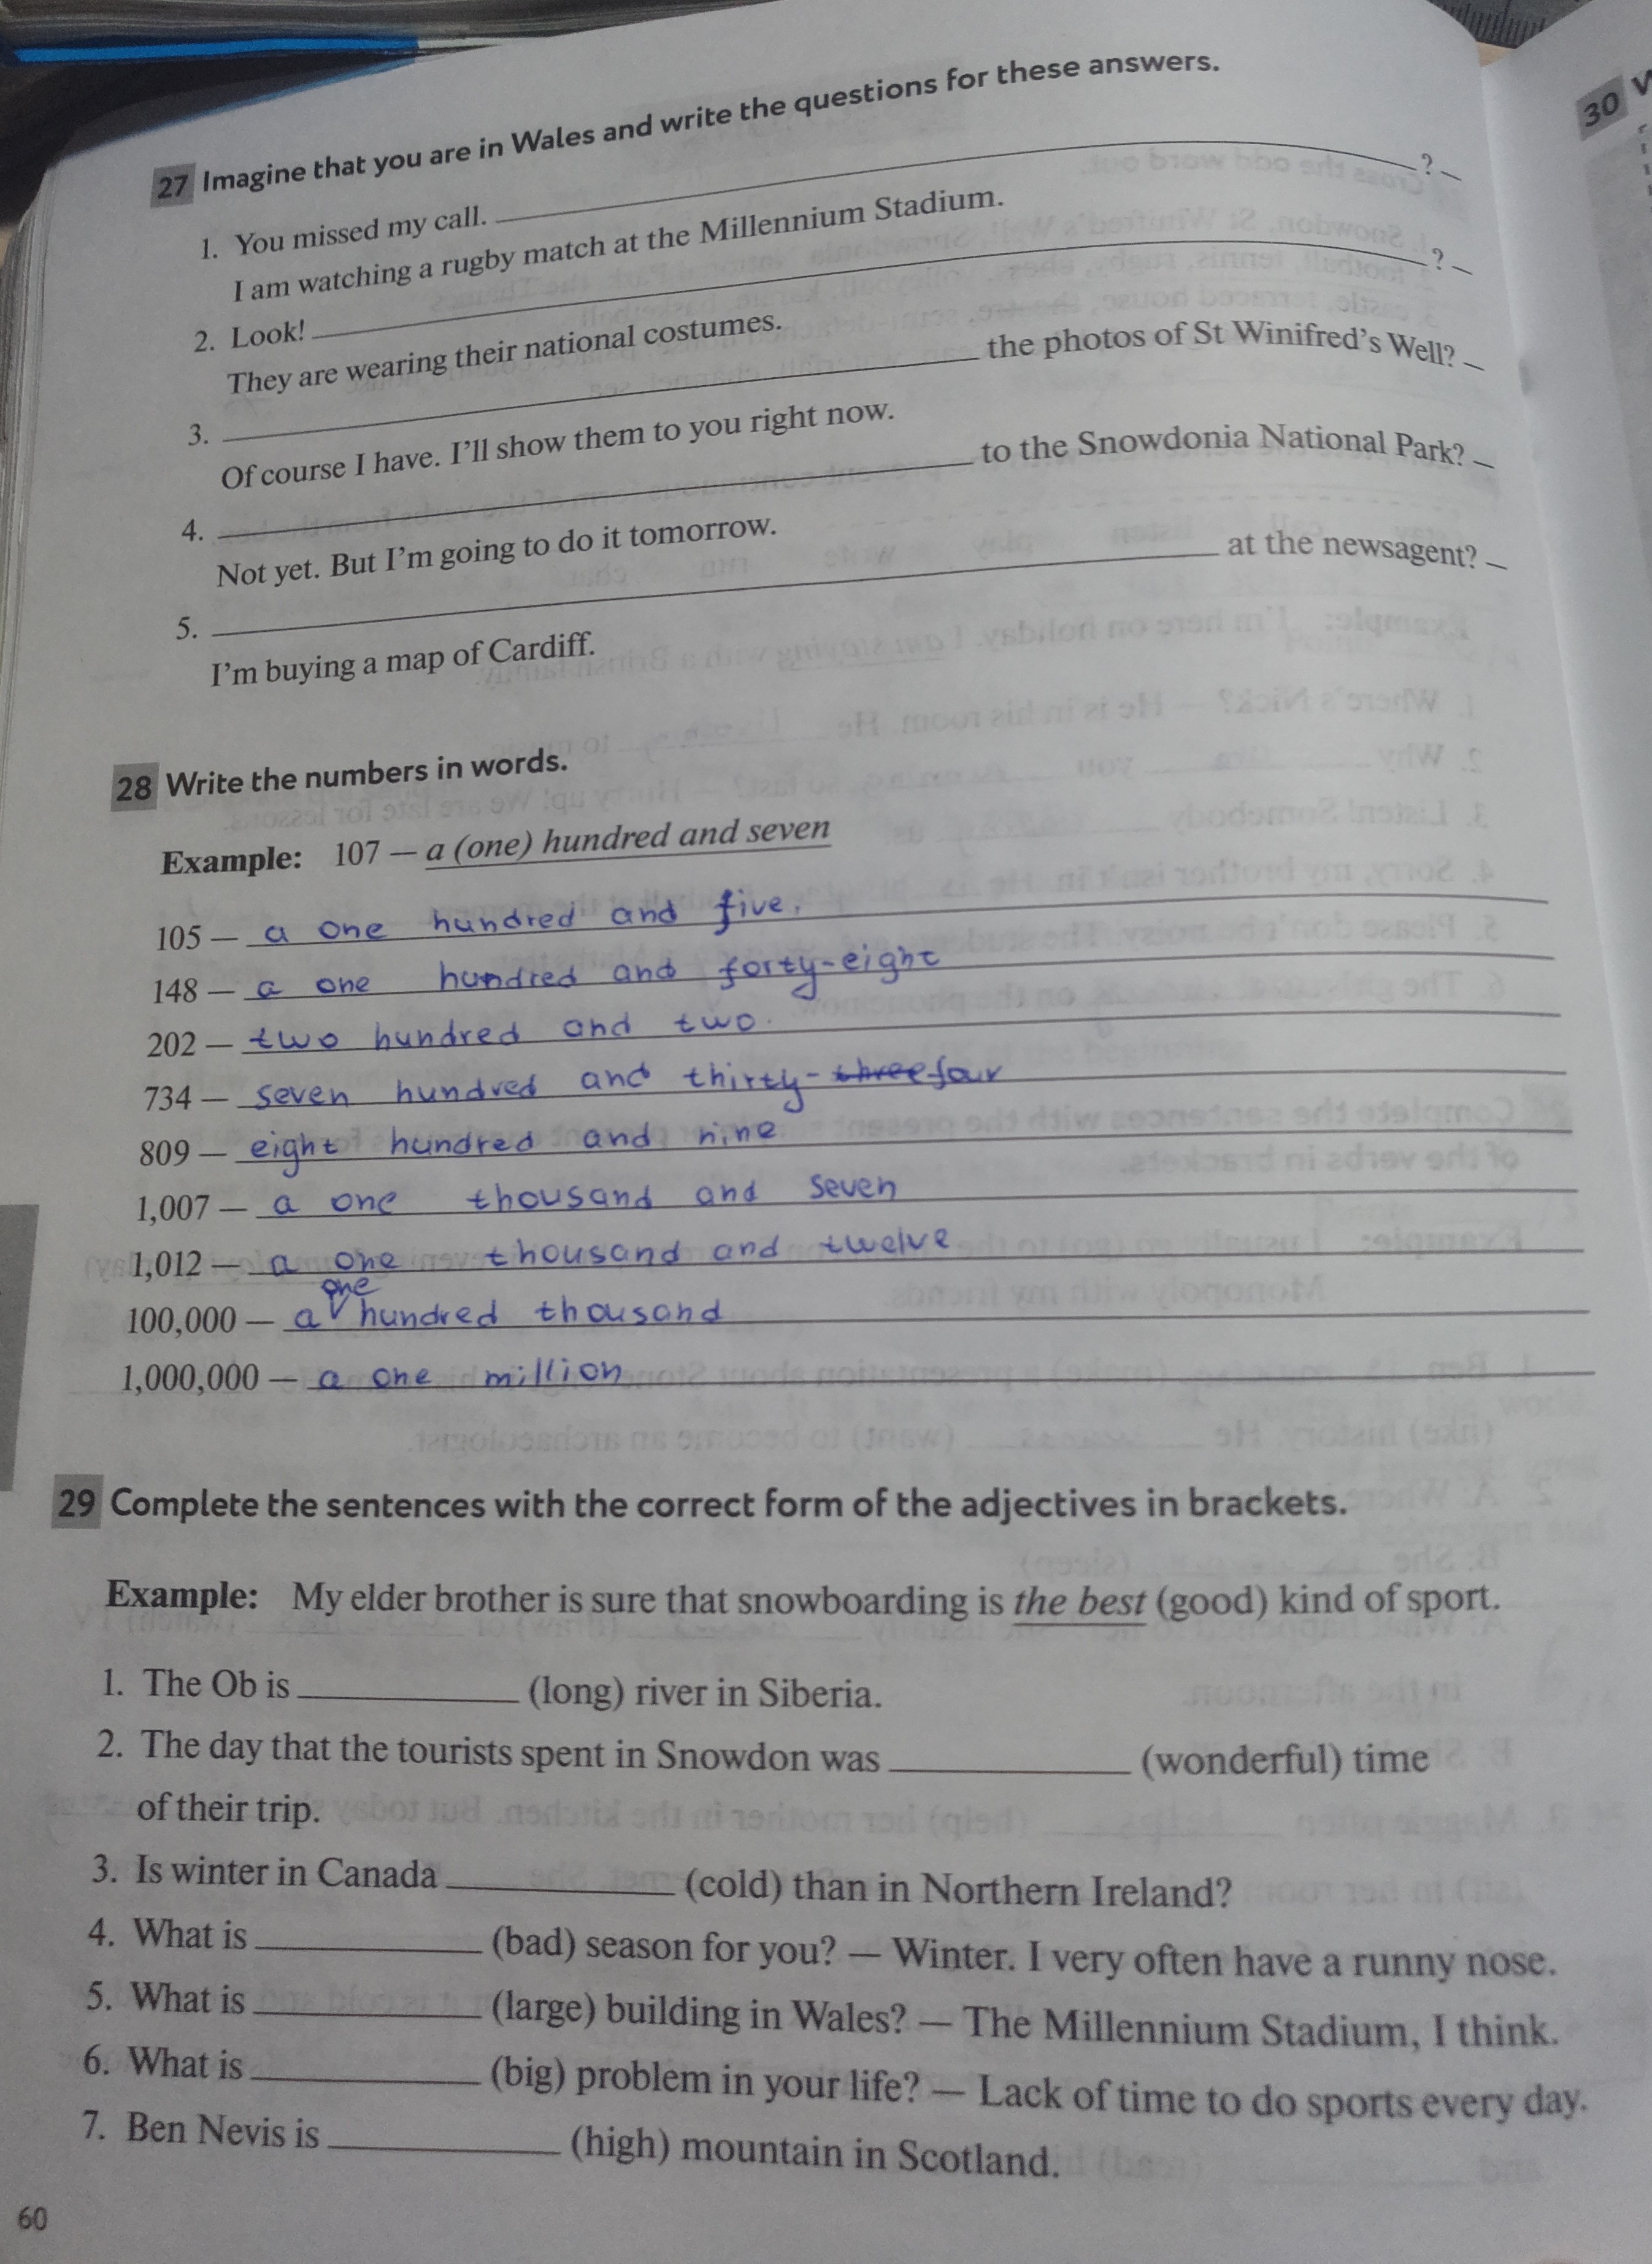 27 Imagine that you are in Wales and write the questions for these answers.
1. You missed my call. ? –
I am watching a rugby match at the Millennium Stadium.
2. Look! ? –
They are wearing their national costumes.
3. the photos of St Winifred's Well? –
Of course I have. I'll show them to you right now.
4. to the Snowdonia National Park? –
Not yet. But I'm going to do it tomorrow.
5. at the newsagent? –
I'm buying a map of Cardiff.
28 Write the numbers in words.
Example: 107 — a (one) hundred and seven
105 — a one hundred and five.
148 — a one hundred and forty-eight
202 — two hundred and two.
734 — seven hundred and thirty-three four
809 — eight hundred and nine
1,007 — a one thousand and seven
1,012 — a one thousand and twelve
100,000 — a one hundred thousand
1,000,000 — a one million
29 Complete the sentences with the correct form of the adjectives in brackets.
Example: My elder brother is sure that snowboarding is the best (good) kind of sport.
1. The Ob is (long) river in Siberia.
2. The day that the tourists spent in Snowdon was (wonderful) time
of their trip.
3. Is winter in Canada (cold) than in Northern Ireland?
4. What is (bad) season for you? — Winter. I very often have a runny nose.
5. What is (large) building in Wales? — The Millennium Stadium, I think.
6. What is (big) problem in your life? — Lack of time to do sports every day.
7. Ben Nevis is (high) mountain in Scotland.
60
30